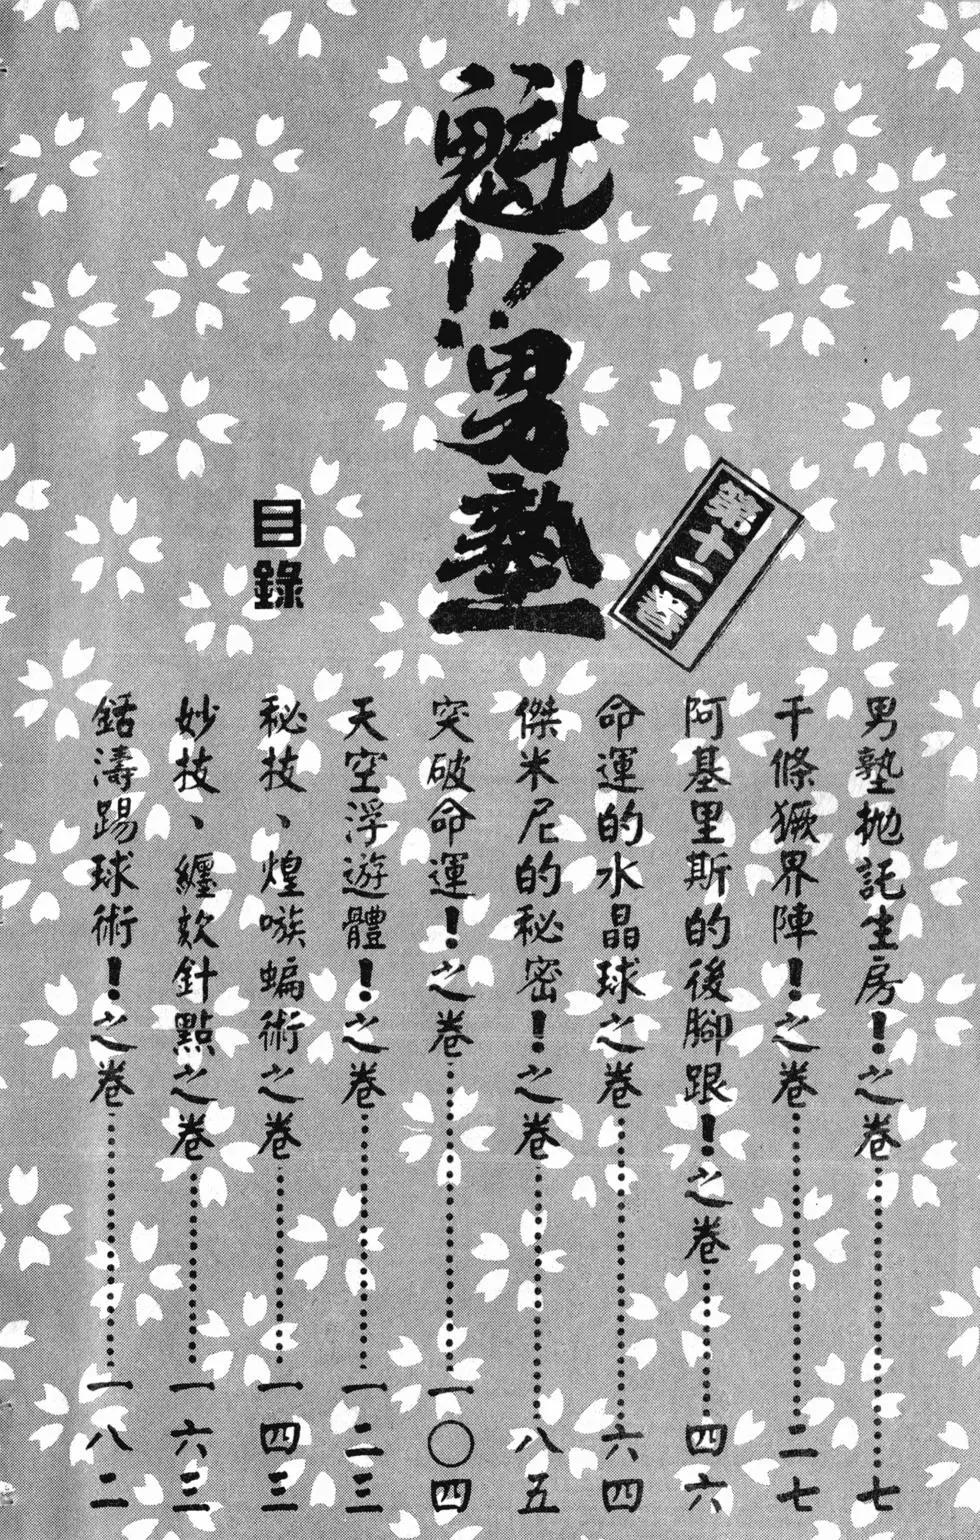 魁!!男塾
第十二卷
目錄
男塾拋託生房！之卷……七
千條獗界陣！之卷……二七
阿基里斯的後腳跟！之卷……四六
命運的水晶球之卷……六四
傑米尼的秘密！之卷……八五
突破命運！之卷……一〇四
天空浮遊體！之卷……一二三
秘技、煌嗾蝙術之卷……一四三
妙技、纏欬針點之卷……一六三
錯濤踢球術！之卷……一八二